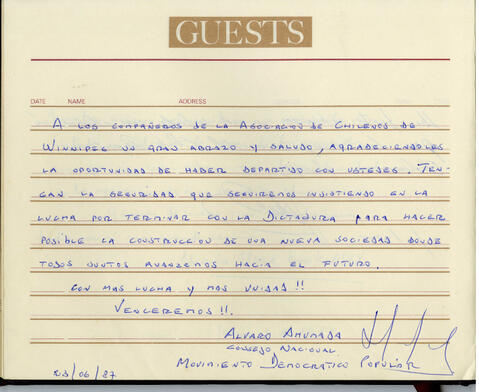 GUESTS
DATE NAME ADDRESS
A LOS COMPAÑEROS DE LA ASOCIACION DE CHILENOS DE
WINNIPEG UN GRAN ABRAZO Y SALUDO, AGRADECIENDOLES
LA OPORTUNIDAD DE HABER DEPARTIDO CON USTEDES. TEN-
GAN LA SEGURIDAD QUE SEGUIREMOS INSISTIENDO EN LA
LUCHA POR TERMINAR CON LA DICTADURA PARA HACER
POSIBLE LA CONSTRUCCION DE UNA NUEVA SOCIEDAD DONDE
TODOS JUNTOS AVANZEMOS HACIA EL FUTURO.
CON MAS LUCHA Y MAS UNIDAD!!
VENCEREMOS!!.
ALVARO AHUMADA
CONSEJO NACIONAL
MOVIMIENTO DEMOCRATICO POPULAR
23/06/87